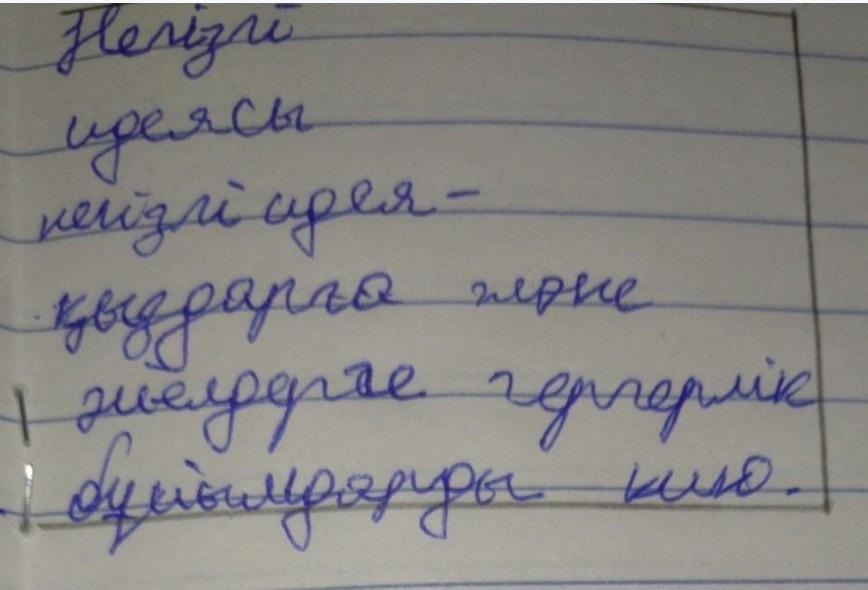 Негізгі
идеясы
негізгі идея -
қыздарға және
әйелдерге зергерлік
бұйымдарды кию.